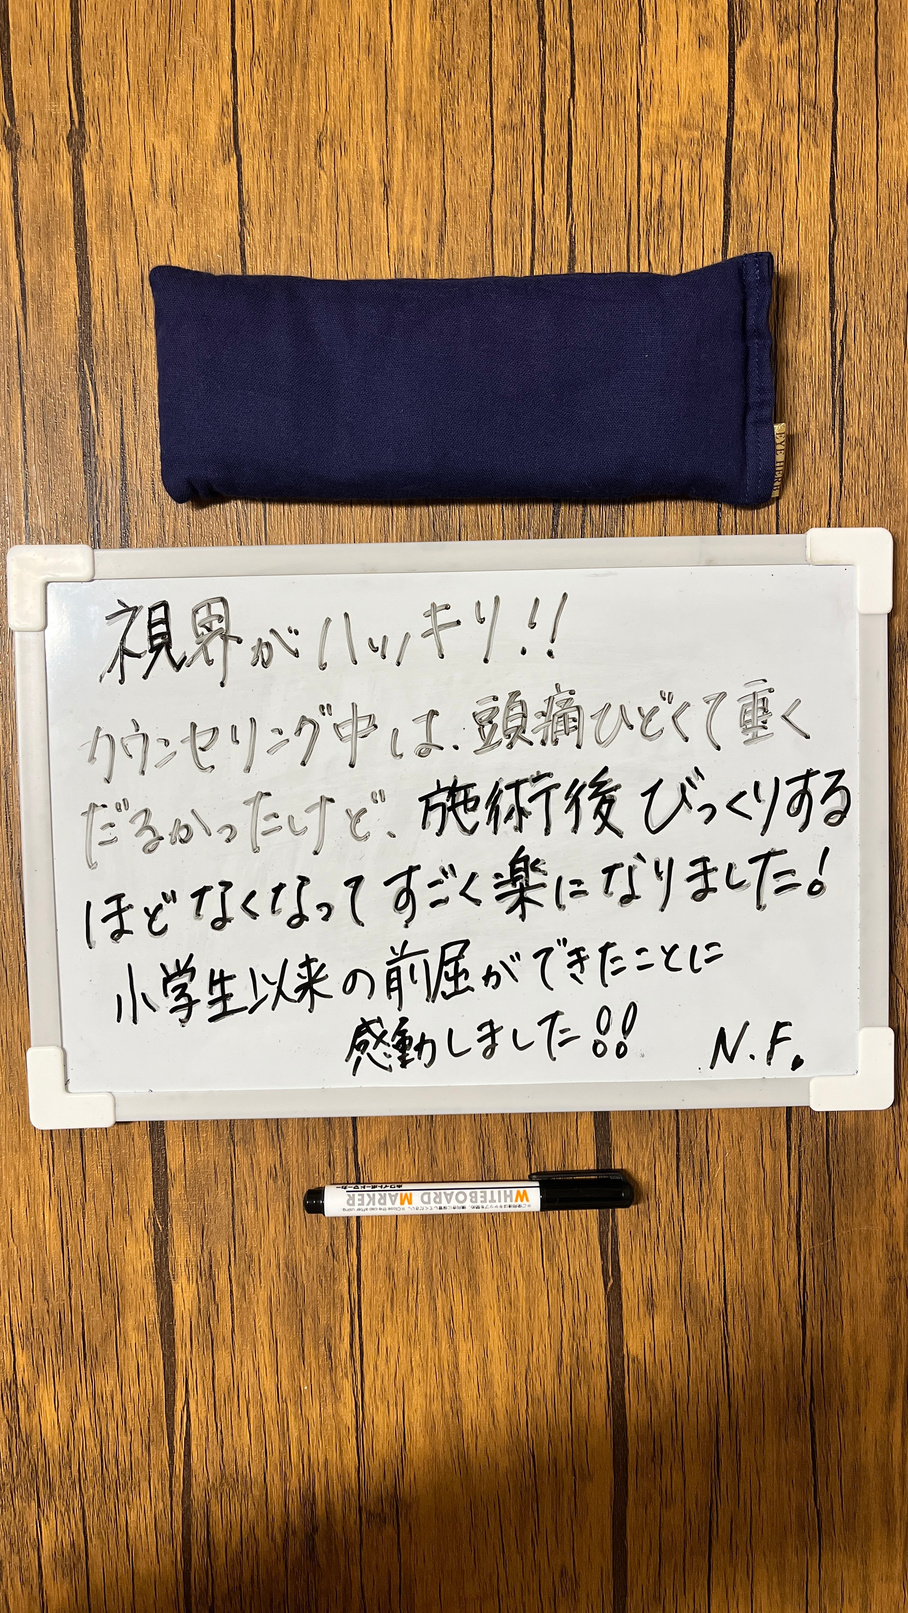 視界がハッキリ!!
カウンセリング中は、頭痛ひどくて重く
だるかったけど、施術後びっくりする
ほどなくなってすごく楽になりました!
小学生以来の前屈ができたことに
感動しました!! N.F.
WHITEBOARD MARKER
ホワイトボードマーカー